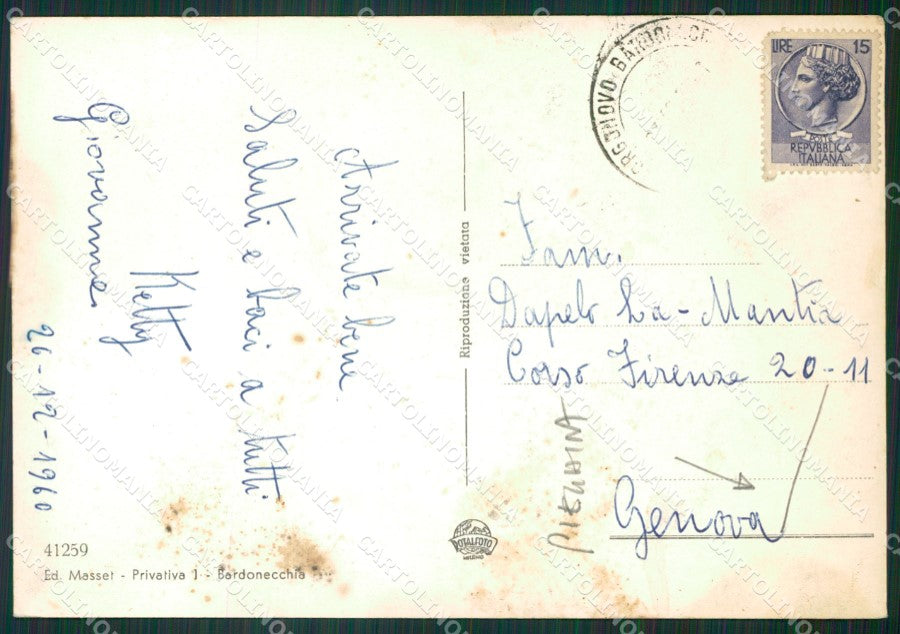 Arrivate bene
Saluti e baci a tutti
Ketty
Giovanna
26-12-1960
41259
Ed. Masset - Privativa 1 - Bardonecchia
Riproduzione vietata
ROTALFOTO
MILANO
LIRE 15
POSTE
REPVBBLICA
ITALIANA
Fam.
Dapelo La-Mantia
Corso Firenze 20-11
Genova
CARTOLINOMANIA